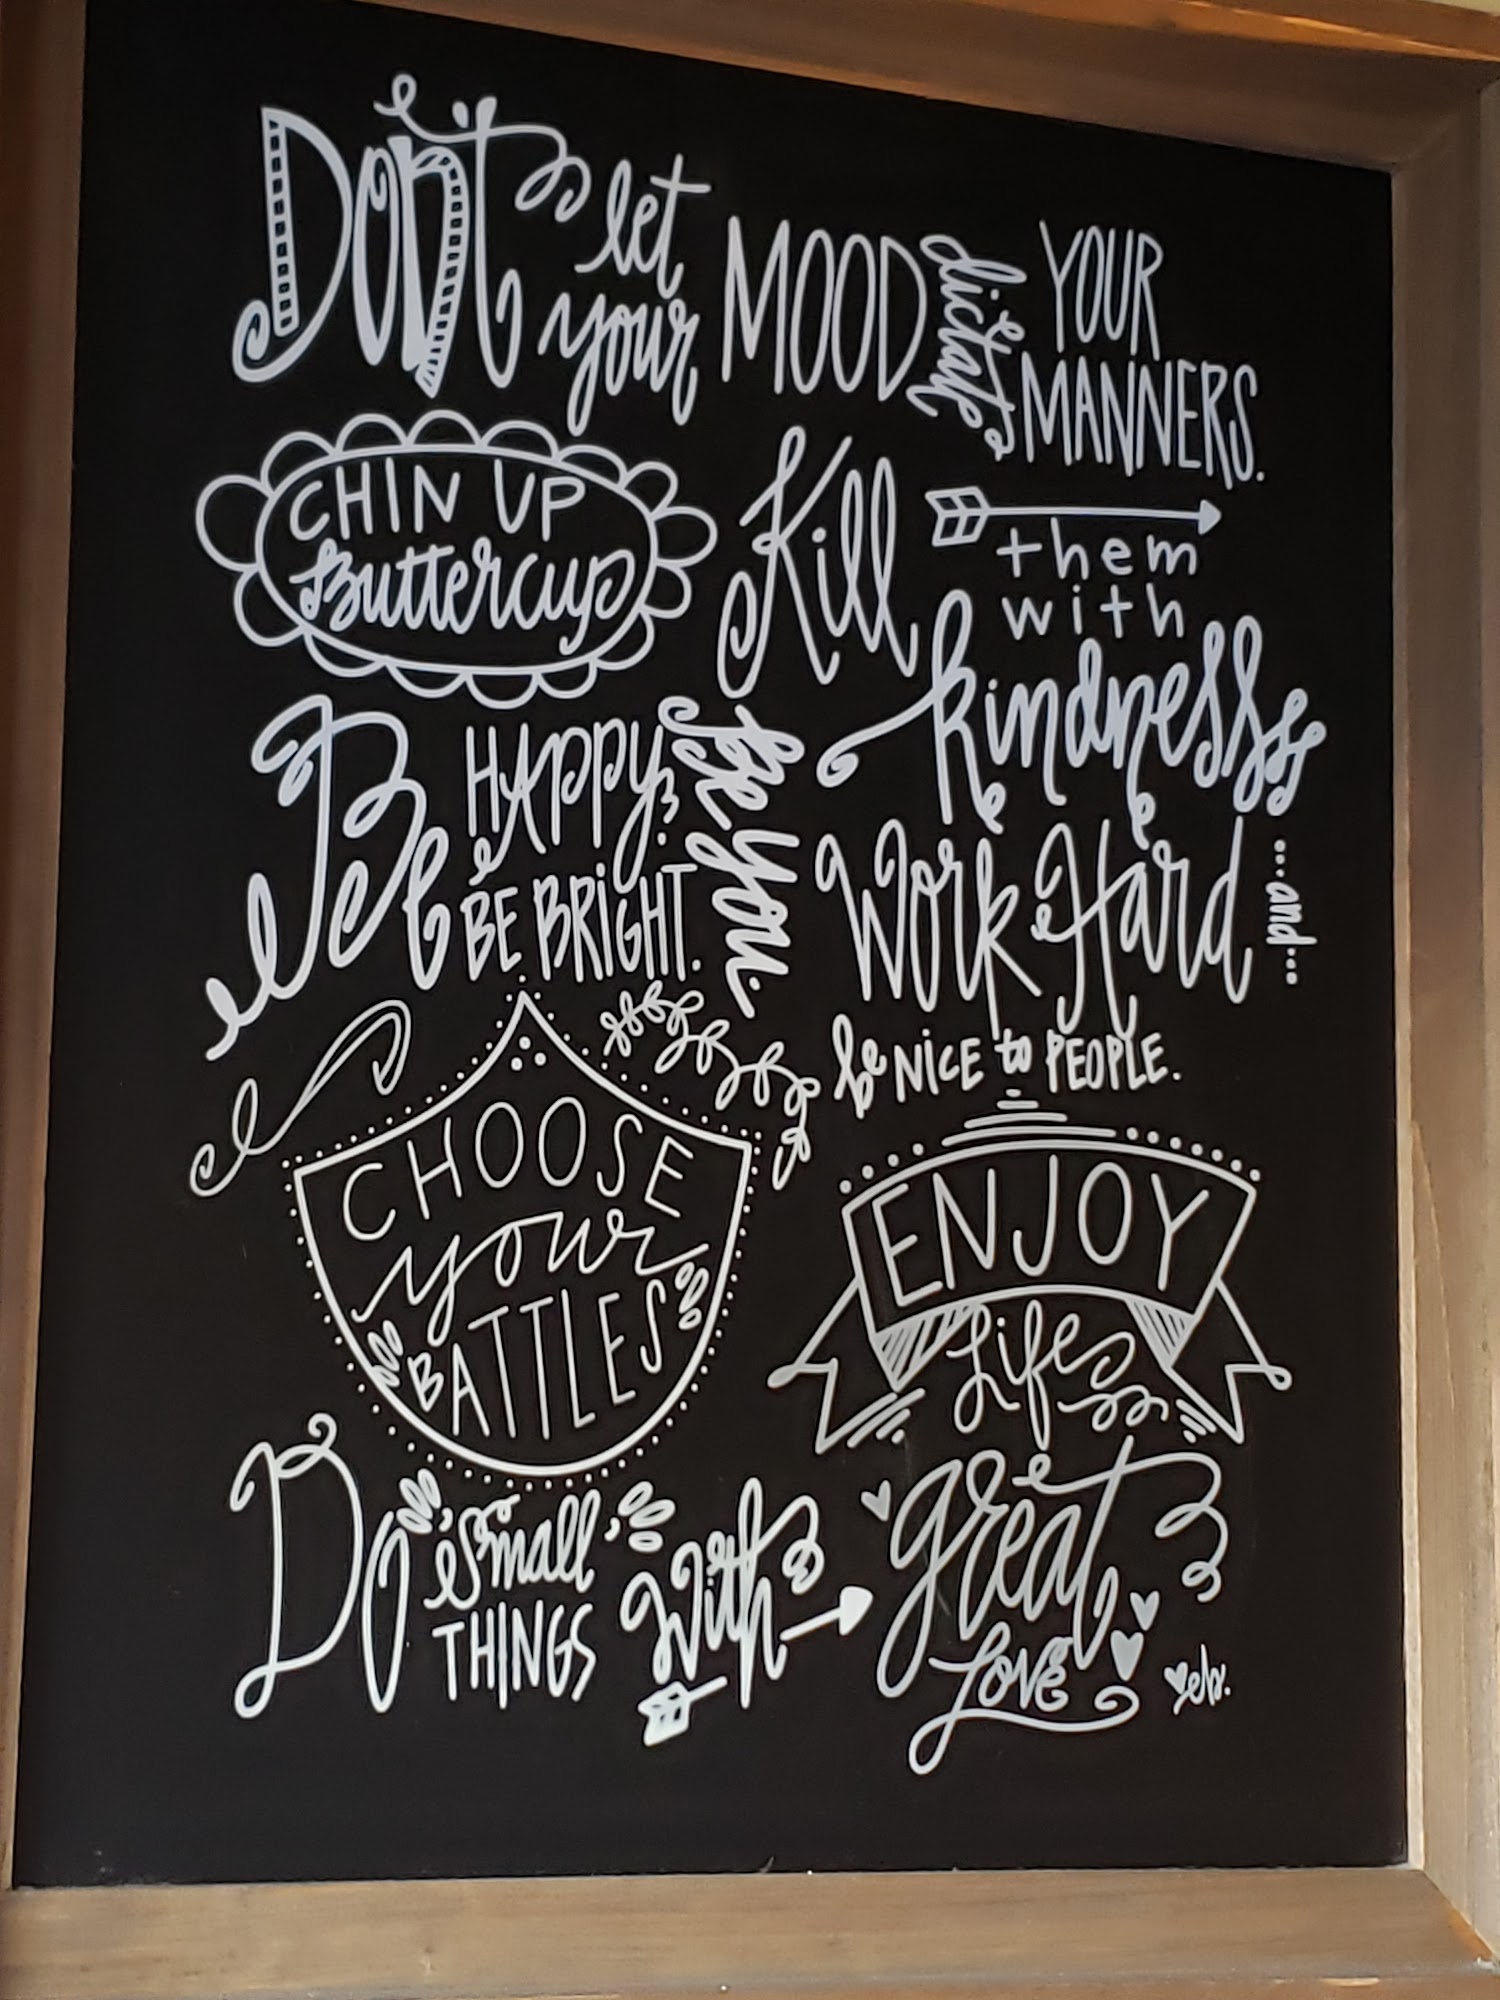 Don't let
your MOOD dictate YOUR
MANNERS.
CHIN UP
Buttercup
Kill them
with
kindness
Be HAPPY,
BE BRIGHT.
Be you.
Work Hard
...and...
be NICE to PEOPLE.
CHOOSE
your
BATTLES
ENJOY
Life
Do "small"
THINGS
with
great
Love